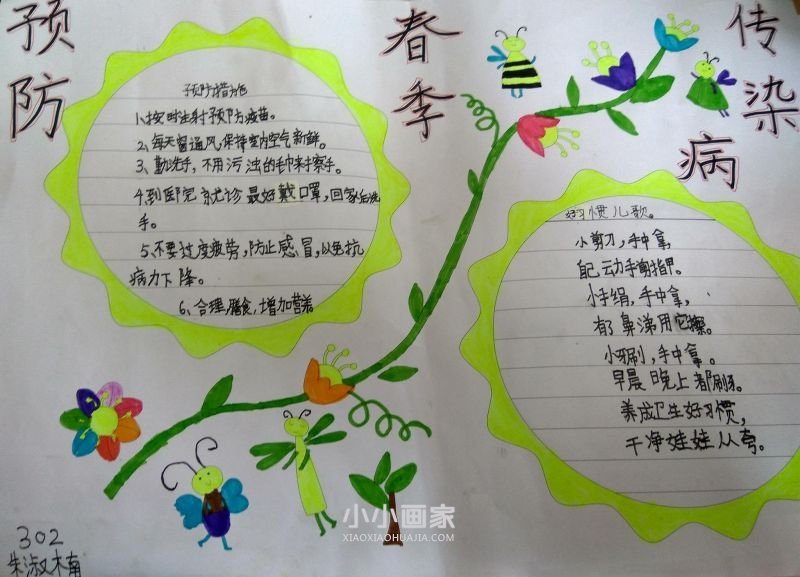 预防
春季
传染
病
预防措施
1、按时注射预防疫苗。
2、每天窗通风,保持室内空气新鲜。
3、勤洗手,不用污浊的毛巾来擦手。
4、到医院就诊最好戴口罩,回家后洗
手。
5、不要过度疲劳,防止感冒,以免抗
病力下降。
6、合理膳食,增加营养。
好习惯儿歌。
小剪刀,手中拿,
自己动手剪指甲。
小手绢,手中拿,
有鼻涕用它擦。
小牙刷,手中拿。
早晨晚上都刷牙。
养成卫生好习惯,
干净娃娃人人夸。
302
朱淑楠
小小画家
XIAOXIAOHUAJIA.COM